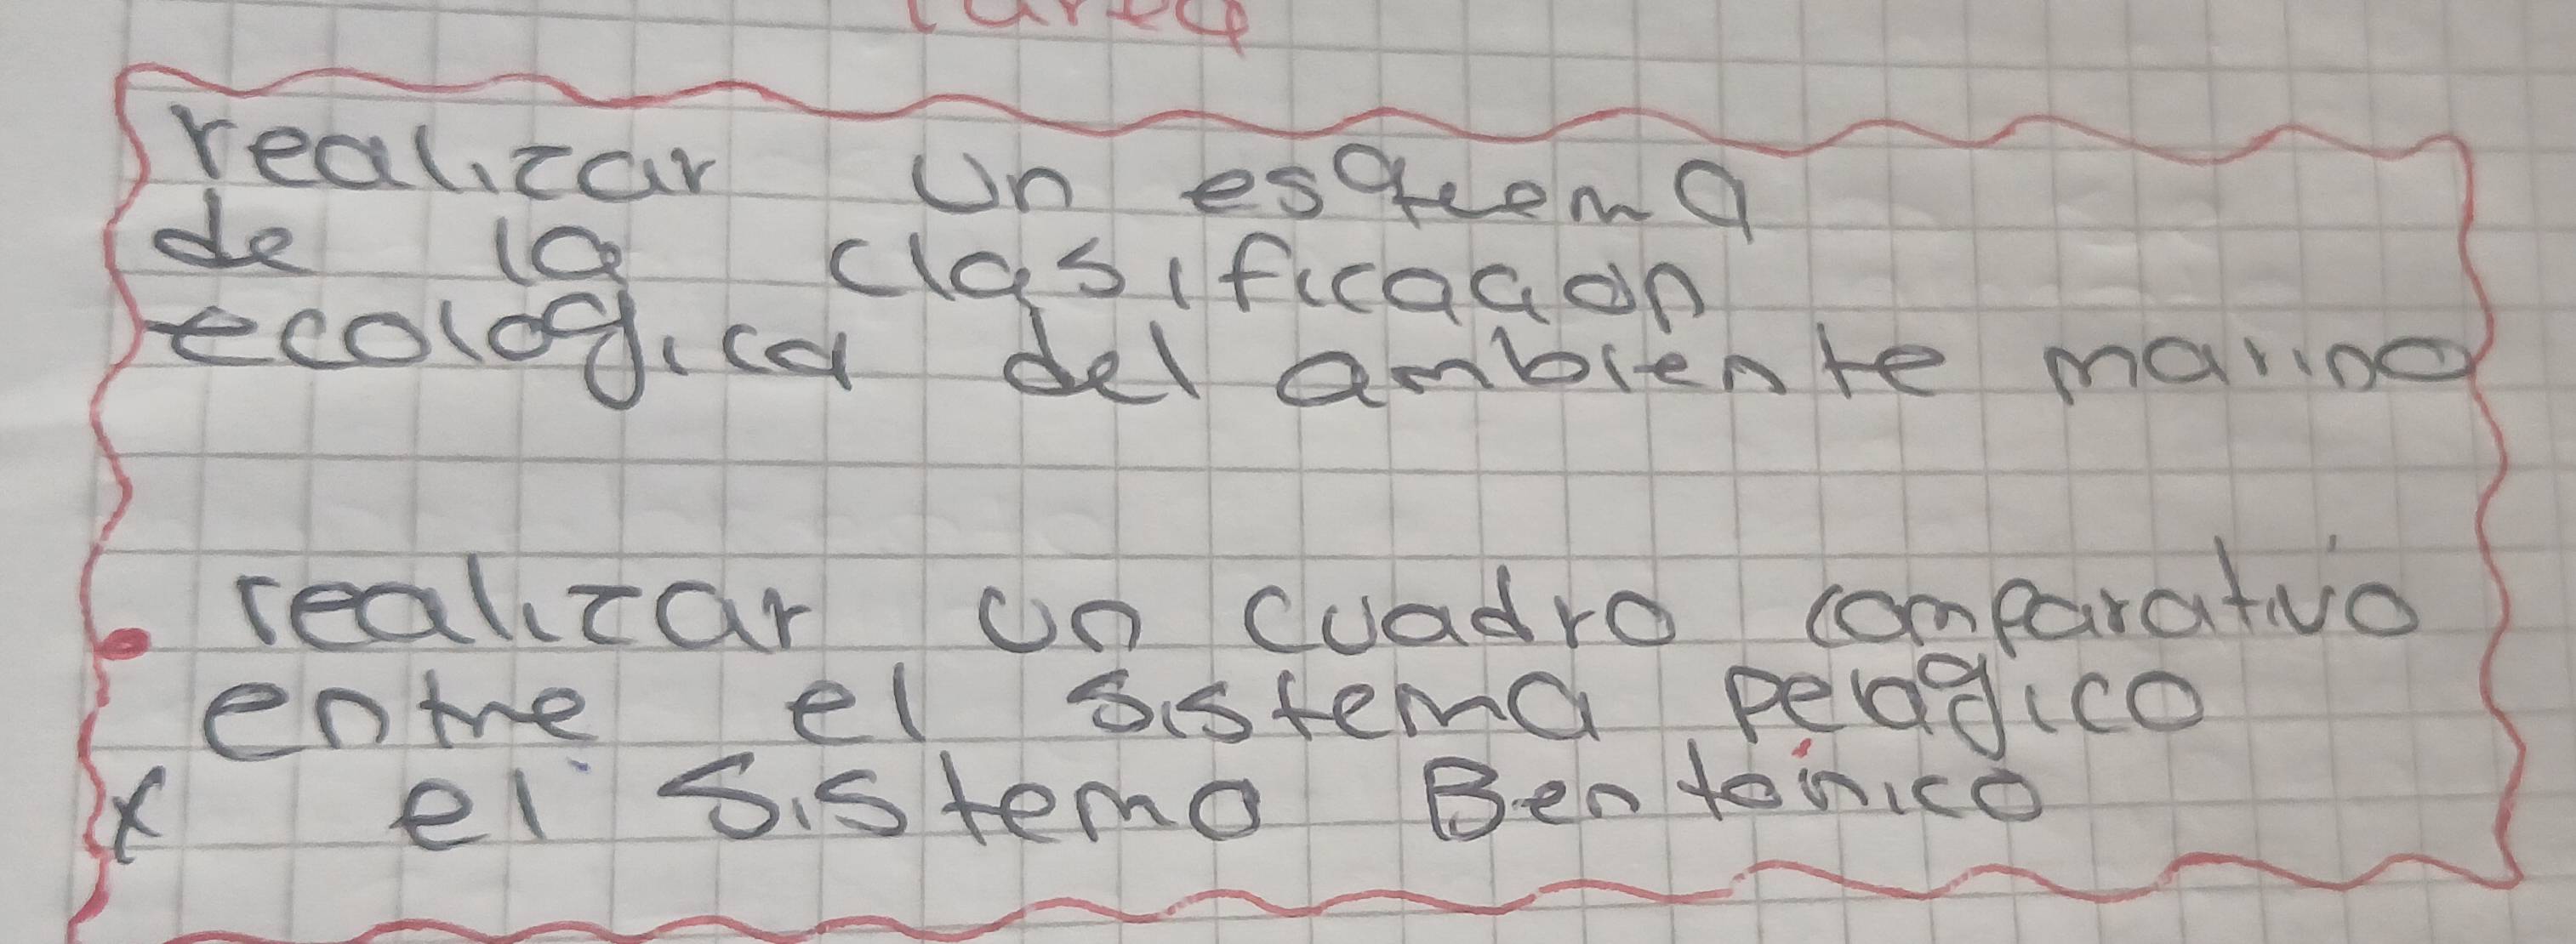 Tarea
realizar un esquema
de la clasificacion
ecologica del ambiente marino
realizar un cuadro comparativo
entre el sistema pelagico
y el sistema Bentónico